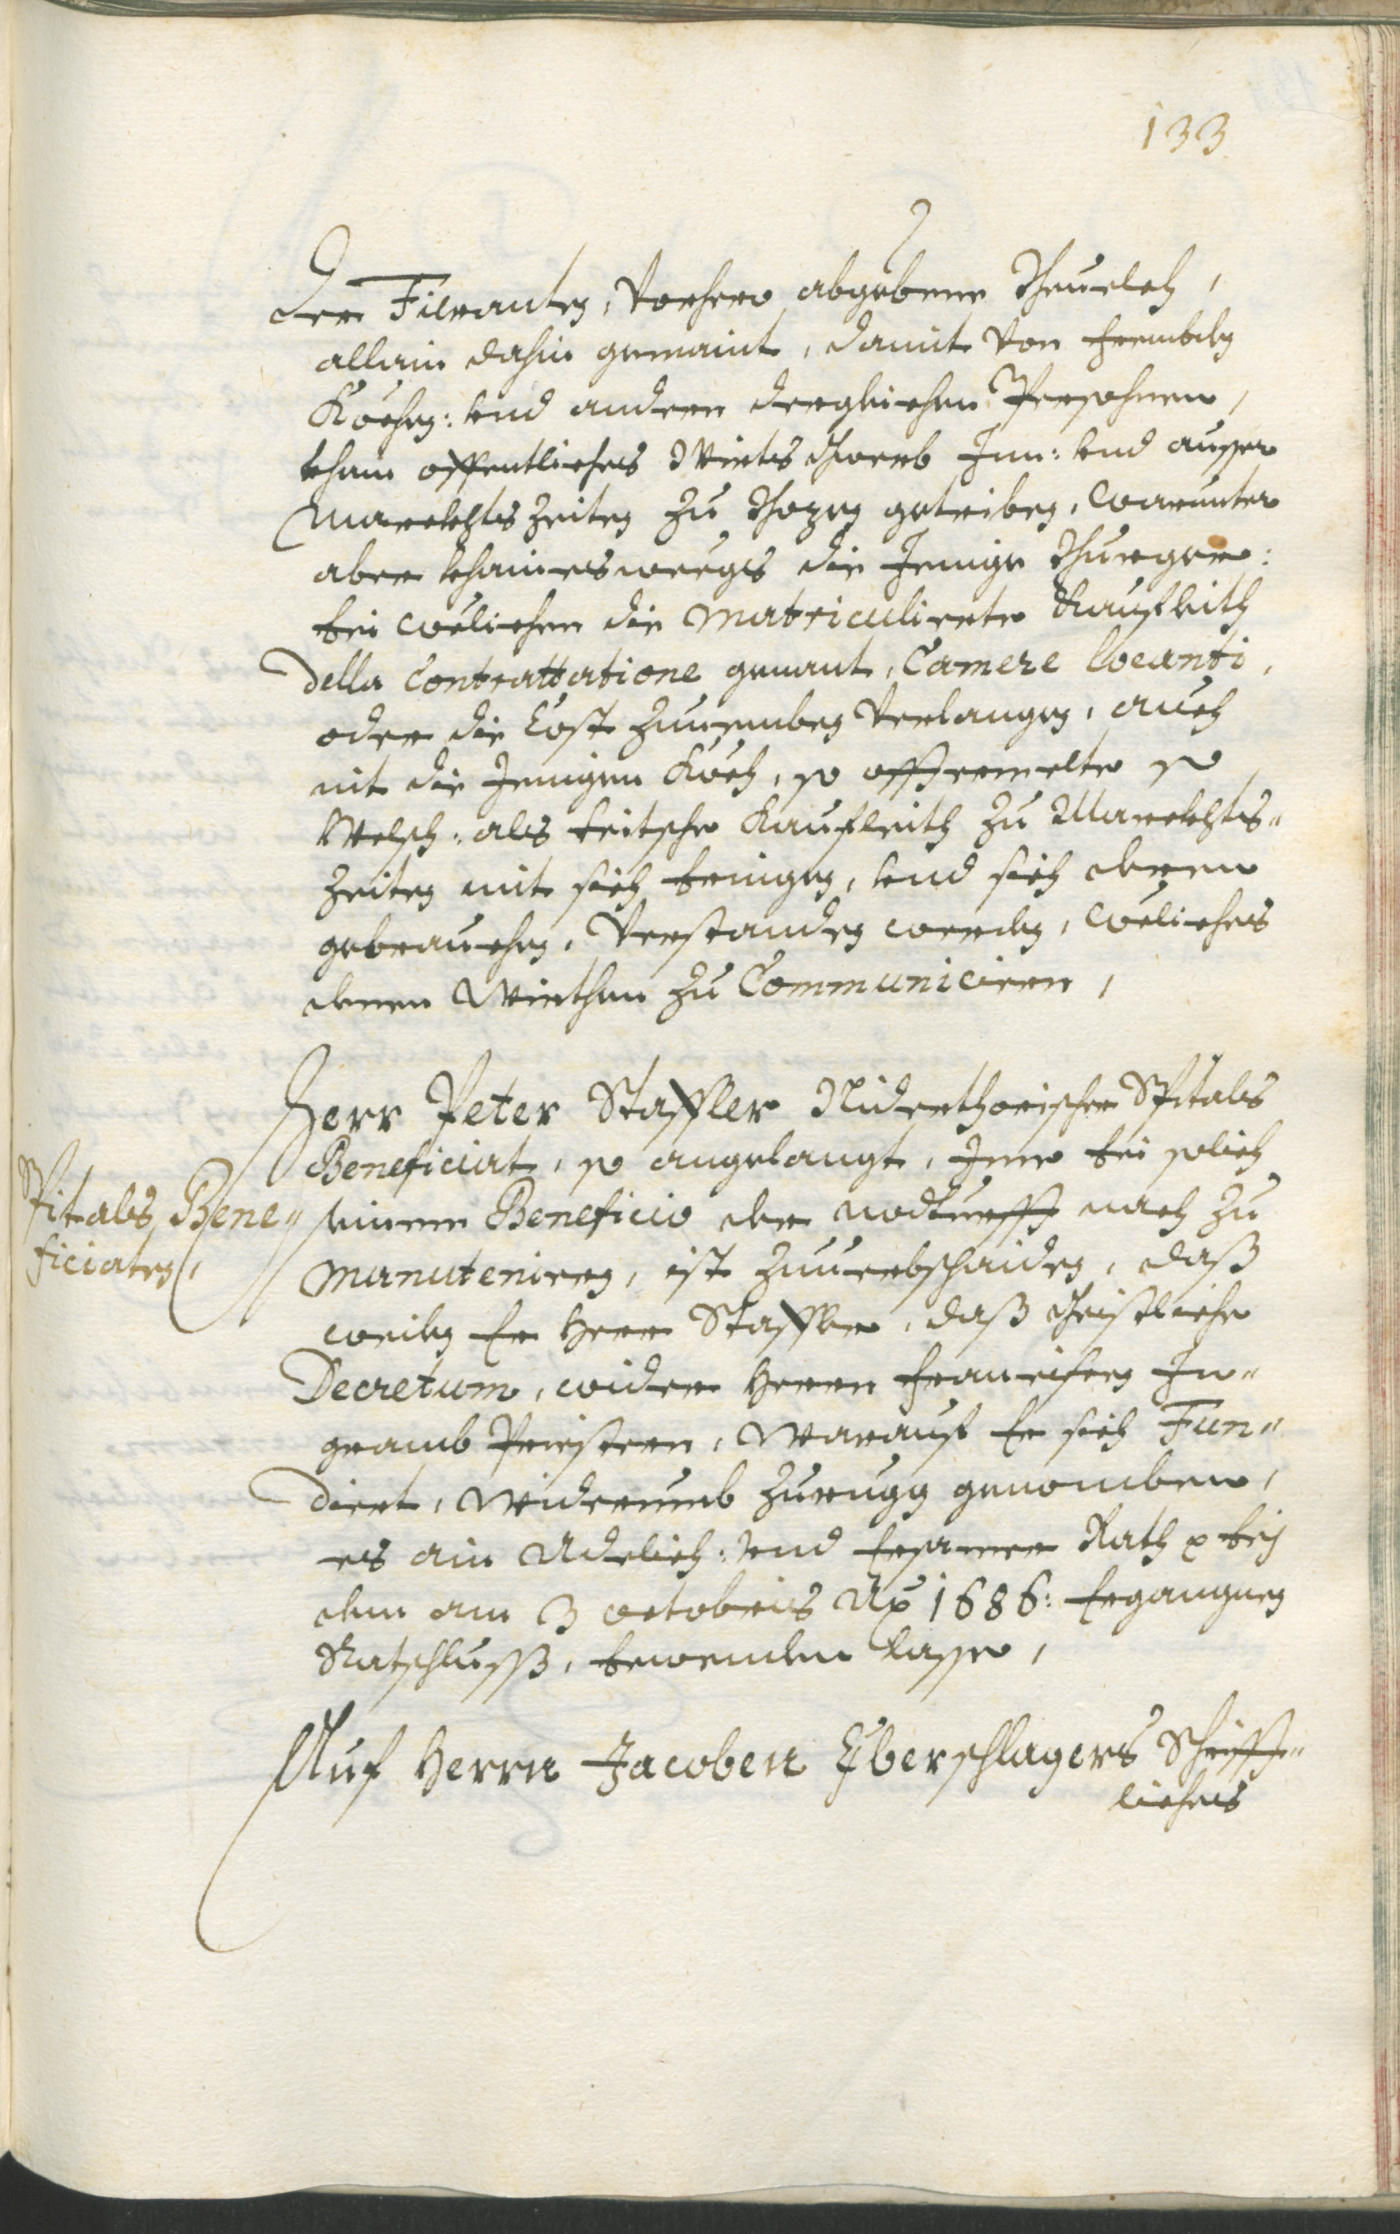 133
der Fieranten, vorhero abgebene Bevelch,
allain dahin gemaint, damit von frembden
Köchen: und andern dergleichen Persohnen,
khain offentliches Wirts Gwerb Inn: und ausser
Marckhts Zeiten zu Bozen getriben, warunter
aber khaineswegs die Jenige Burger:
bei welichen die Matriculierte Kaufleith
della Contrattatione genant, Camere locanti,
oder die Cost zunemben verlangen, auch
nit die Jenigen Köch, so offtermelte so
Welsch: als teitsche Kaufleith zu Marckhts-
Zeiten mit sich bringen, und sich deren
gebrauchen, verstanden werden, weliches
denen Wirthen zu Communiciern,
Herr Peter Staffler Niderthorischer Spitals
Beneficiat, so angelangt, Ime bei solich
Spitals Bene-
ficiaten,
seinem Beneficio der nodturfft nach zu
manutenieren, ist zuverabschaiden, daß
weilen Er Herr Staffler, daß Geistliche
Decretum, wider Herrn Francischen In-
gramb Priestern, warauf Er sich Fun-
diert, widerumb zurugg genomben,
es ain Adelich: und Ersamer Rath bej
dem am 3 octobris Ao 1686: Ergangnen
Ratschlusß, bewenden lasse,
Auf Herrn Jacoben Eberschlagers Schrifft-
liches